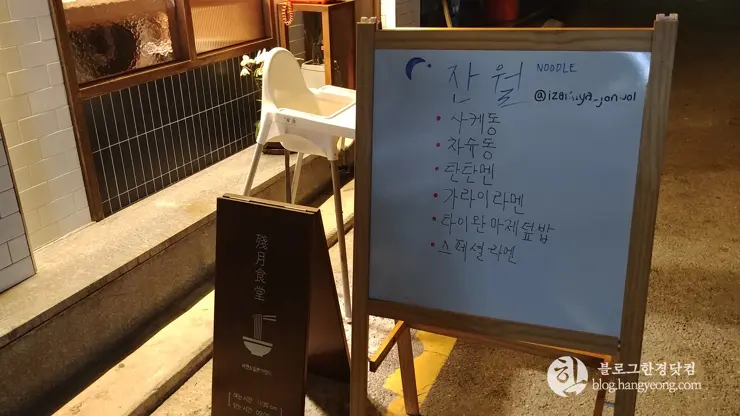 잔월 NOODLE
@izakaya_janwol
사케동
차슈동
탄탄멘
가라이라멘
타이완마제덮밥
스페셜라멘
殘月食堂
블로그한경닷컴
blog.hangyeong.com